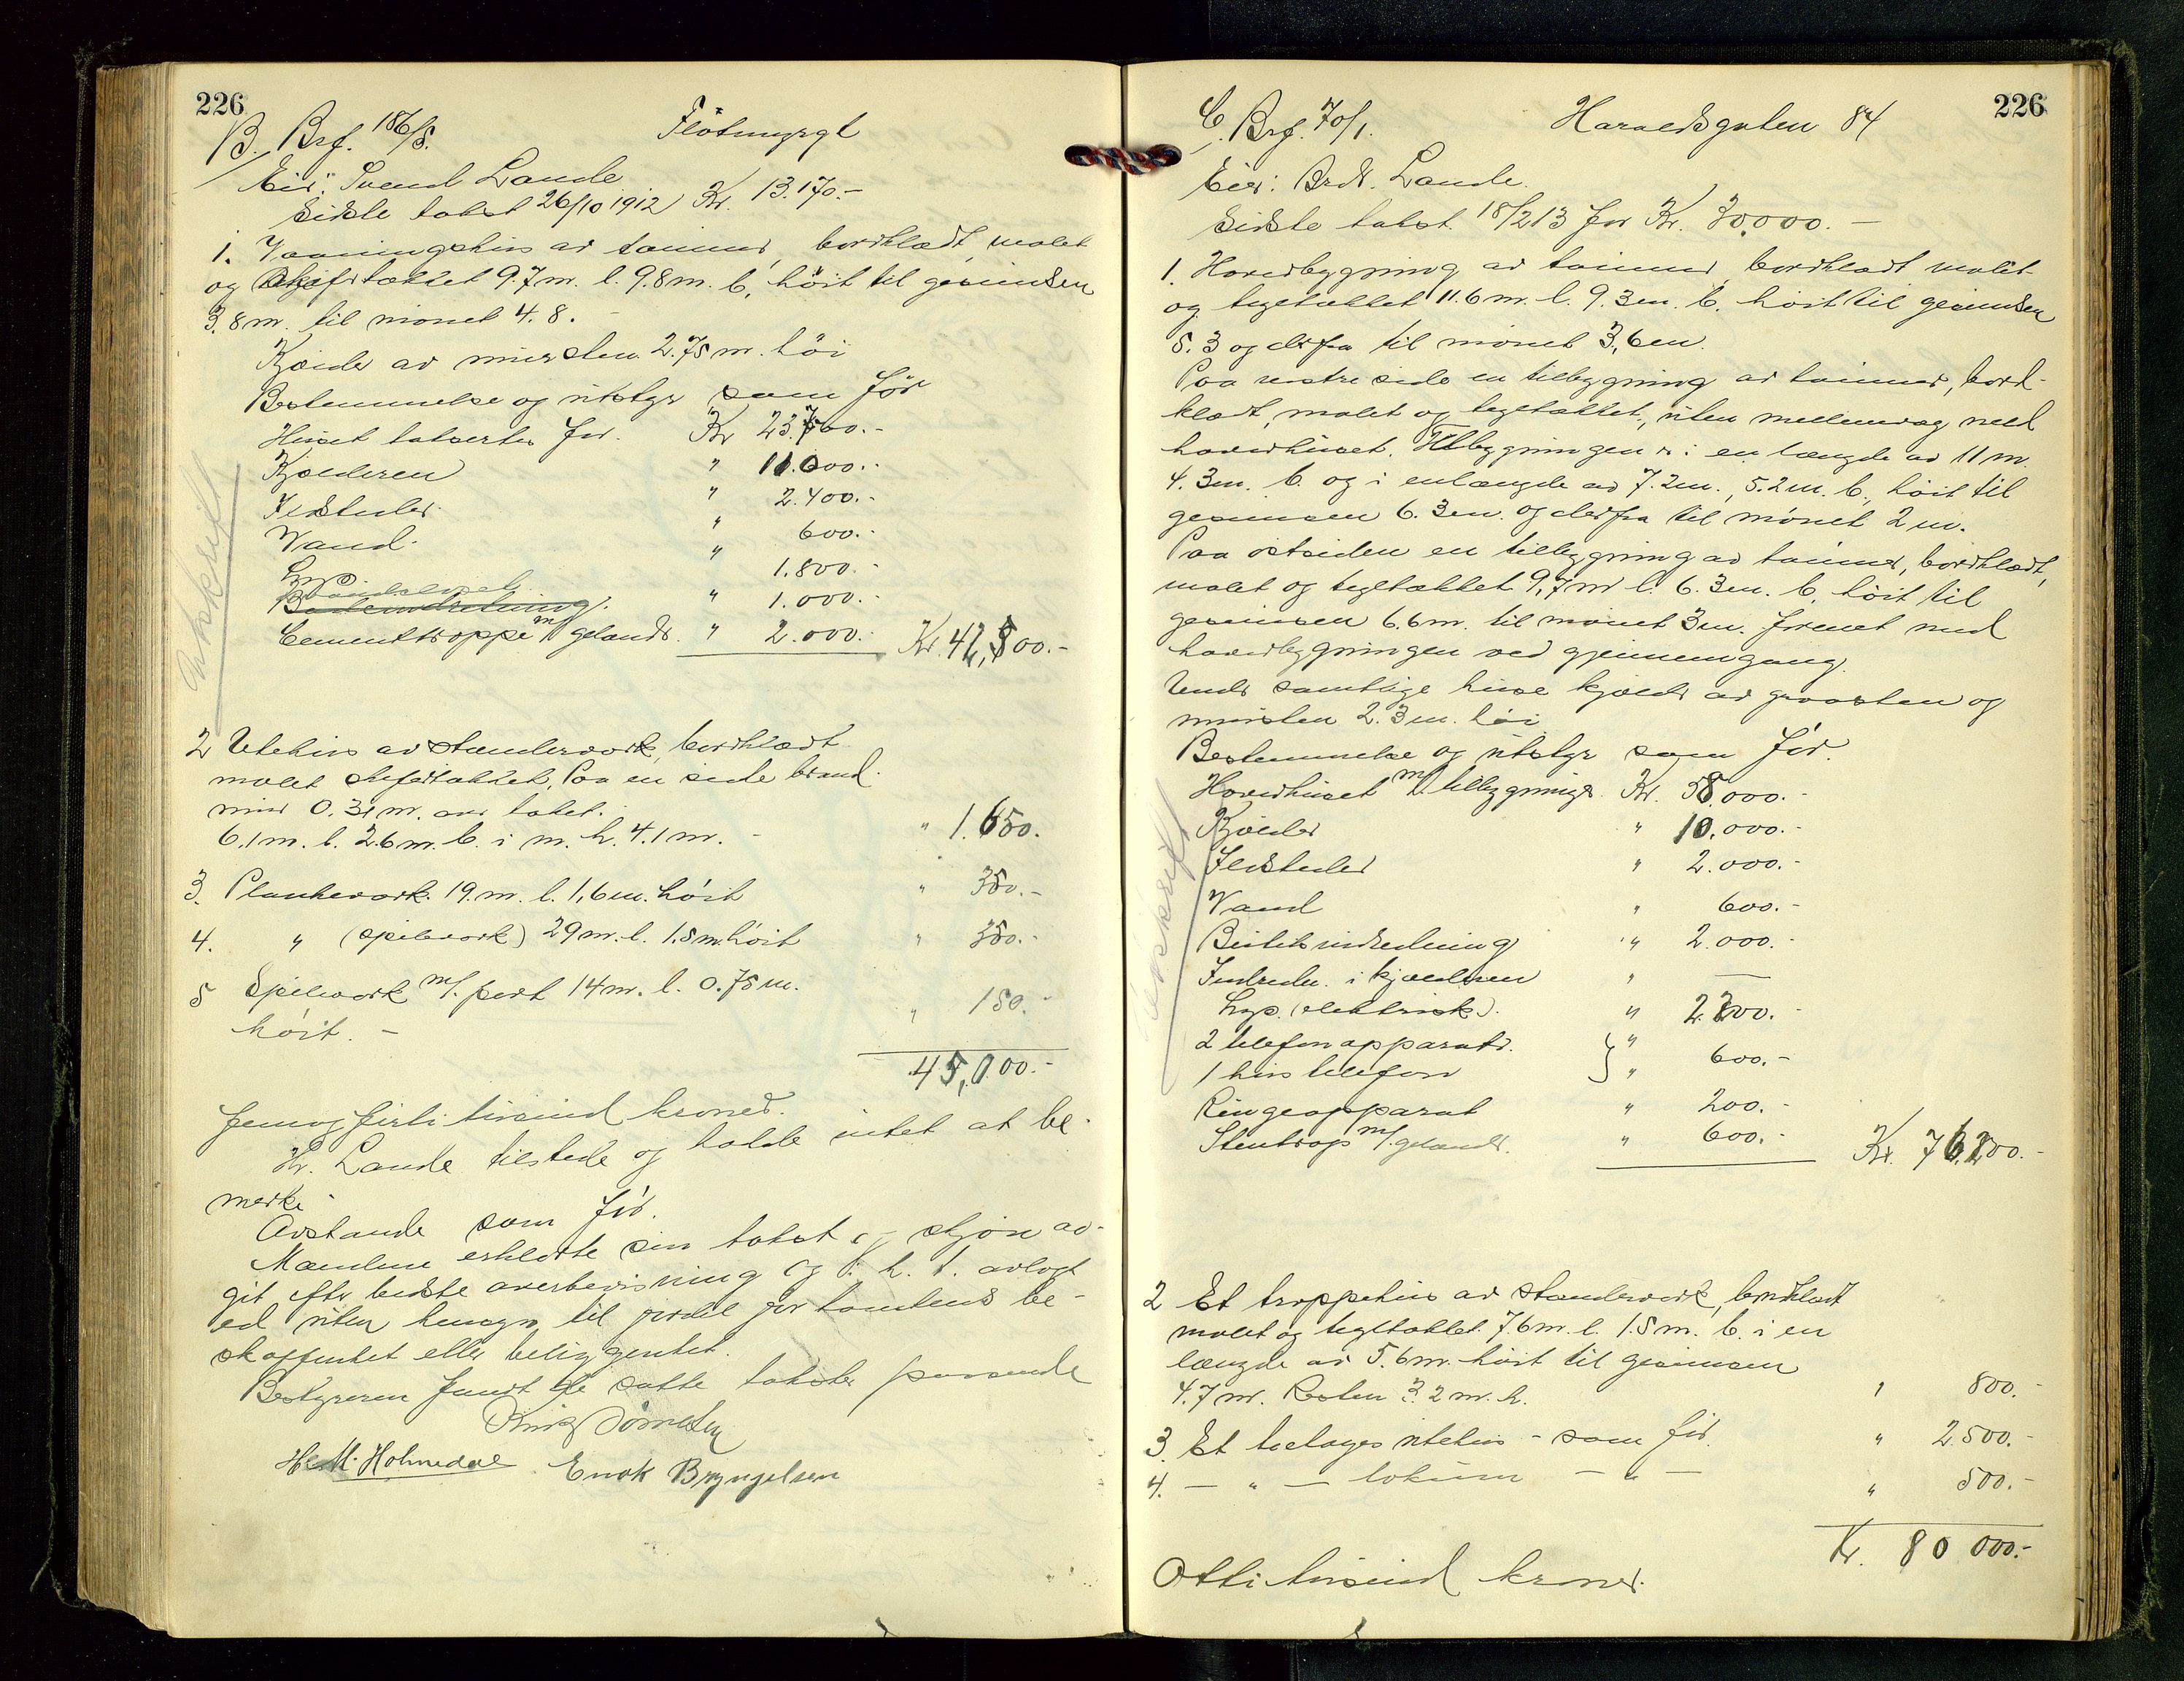 226
B. Brf. 186/5. Flotmyrgt
Eier: Svend Lande
Sidste takst 26/10 1912 Kr. 13.170.-
1. Vaaningshus av tømmer, bordklædt, malet
og skifertækket 9.7 m. l. 9.8 m. b. høit til gesimsen
3.8 m. til mønet 4.8. -
Kjælder av mursten 2.75 m. høi
Bestemmelse og utstyr som før
Huset takseres for. Kr 23.700.-
Kjælderen " 11.000.-
Ildsteder. " 2.400.-
Vand. " 600.-
Lys. " 1.800.-
" 1.000.-
Cementtrappe m/ gelænder. " 2.000.- Kr. 42,500.-
2 Utehus av stænderverk, bordklædt
malet skifertækket. Paa en side brand-
mur 0.31 m. over taket.
6.1 m. l. 2.6 m. b. i m. h. 4.1 m. - " 1.650.
3. Plankeverk. 19. m. l. 1,6 m. høit " 350.-
4. " (spileverk) 29 m. l. 1.5 m. høit " 350.-
5 Spileverk m/. port 14 m. l. 0.75 m.
høit. - " 150.-
45,000.-
Femogfirti tusind kroner.
Hr. Lande tilstede og hadde intet at be-
merke.
Avstande som før.
Mændene erklærte sin takst og skjøn av-
git efter bedste overbevisning og i h. t. avlagt
ed uten hensyn til fordel for tomtens be-
skaffenhet eller beliggenhet.
Bestyreren fandt de satte takster passende
H. M. Holmedal Enok Bryngelsen
226
C. Brf. 70/1. Haraldsgaten 84
Eier: Brdr. Lande.
Sidste takst. 18/2 13 for Kr. 30.000. -
1. Hovedbygning av tømmer, bordklædt malet
og tegltækket 11.6 m. l. 9.3 m. b. høit til gesimsen
5.3 og derfra til mønet 3,6 m.
Paa vestre side en tilbygning av tømmer, bord-
klædt, malet og tegltækket, uten mellemvæg med
hovedhuset. Tilbygningen er i en længde av 11 m.
4.3 m. b. og i en længde av 7.2 m., 5.2 m. b., høit til
gesimsen 6.3 m. og derfra til mønet 2 m.
Paa østsiden en tilbygning av tømmer, bordklædt,
malet og tegltækket 9,7 m l. 6.3 m. b. høit til
gesimsen 6.6 m. til mønet 3 m. forenet med
hovedbygningen ved gjennemgang.
Under samtlige huse kjælder av graasten og
mursten 2.3 m. høi
Bestemmelse og utstyr som før.
Hovedhuset m/. tilbygninger Kr. 58,000.-
Kjælder " 10.000.-
Ildsteder " 2.000.-
Vand " 600.-
Butikindredning " 2.000.-
Indredn. i kjælderen " —
Lys. (elektrisk). " 2.200.-
2 telefonapparater. "
1 hustelefon } " 600.-
Ringeapparat " 200.-
Stentrap m/. gelænder. " 600.- Kr. 76.200.-
2 Et trappehus av stænderverk, bordklædt
malet og tegltækket 7.6 m. l. 1.5 m. b. i en
længde av 5.6 m. høit til gesimsen
4.7 m. Resten 3.2 m. h. " 800.-
3. Et toetages utehus - som før. " 2.500.-
4. — " — lokum — " — " 500.-
Kr. 80 000.-
Otti tusind kroner.